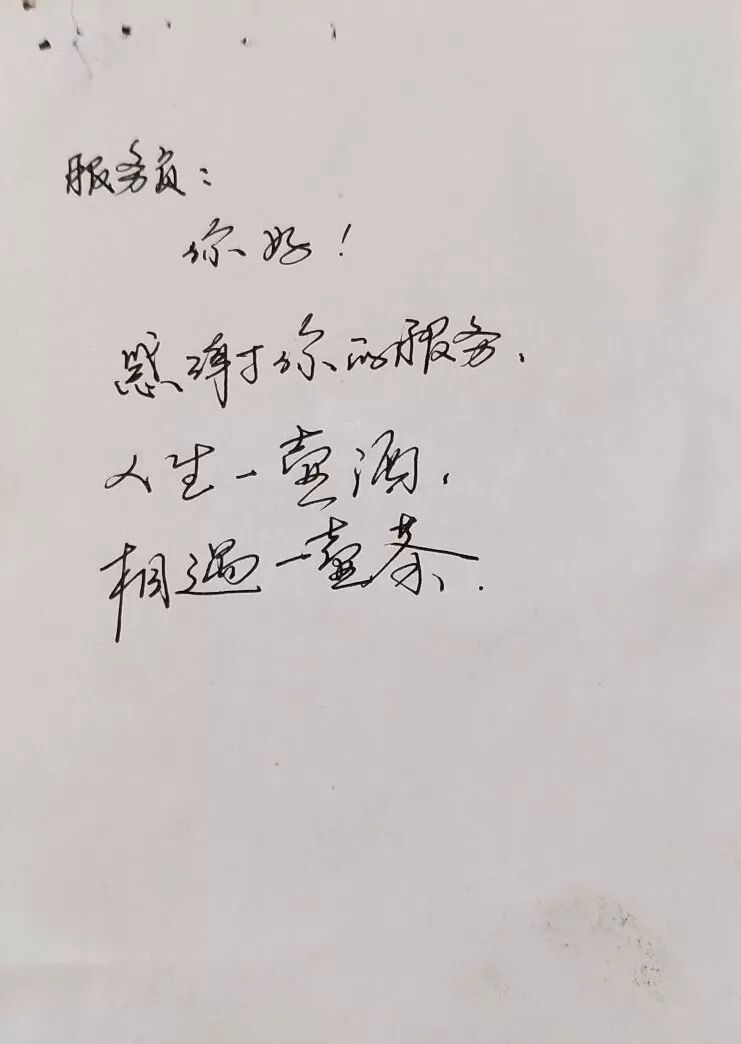 服务员：
你好！
感谢你的服务，
人生一壶酒，
相遇一壶茶.